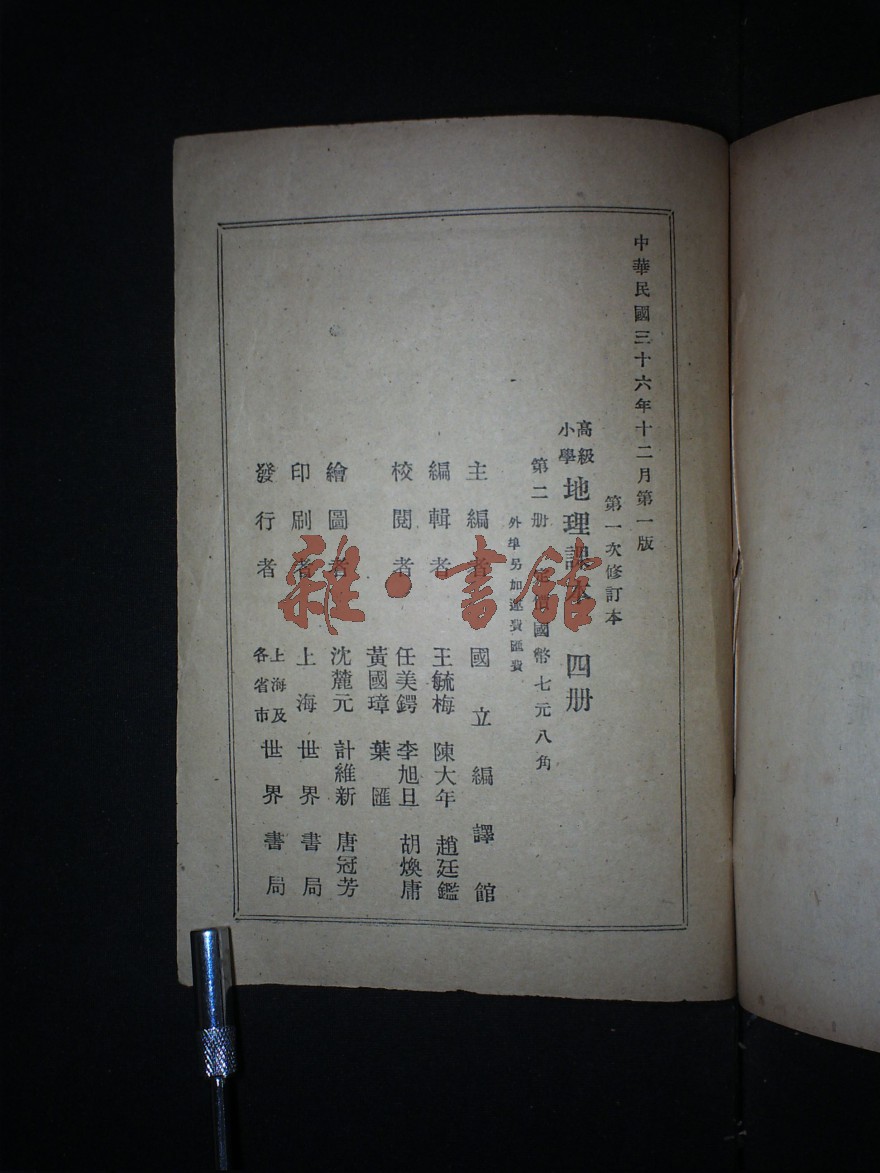 中華民國三十六年十二月第一版
第一次修訂本
高級小學 地理課本 四册
第二册 定價國幣七元八角
外埠另加運費匯費
主編者 國立編譯館
編輯者 王毓梅 陳大年 趙廷鑑
校閱者 任美鍔 李旭旦 胡煥庸
黃國璋 葉匯
繪圖者 沈麓元 計維新 唐冠芳
印刷者 上海世界書局
發行者 上海及各省市 世界書局
雜·書館